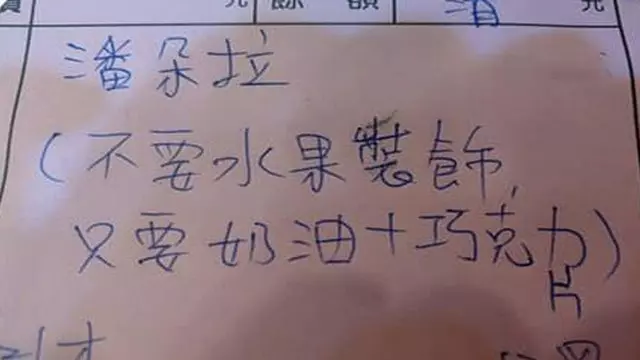 元 餘額 元
潘朵拉
(不要水果裝飾,
只要奶油+巧克力)
片